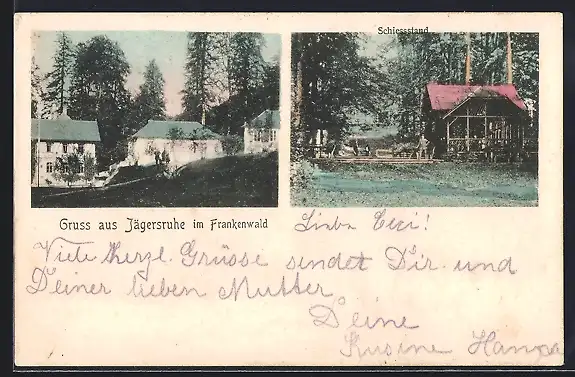 Schiessstand
Gruss aus Jägersruhe im Frankenwald
Liebe Cici!
Viele herzl. Grüsse sendet Dir und
Deiner lieben Mutter
Deine
Kusine